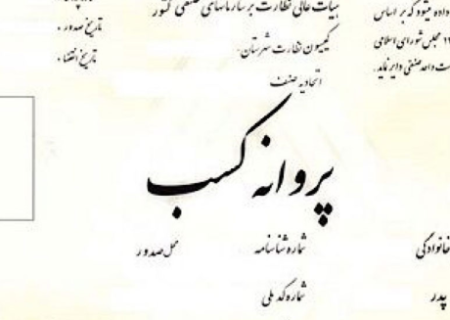 داده میشود که بر اساس هیات عالی نظارت بر سازمانهای صنفی کشور
مجلس شورای اسلامی کمیسیون نظارت شهرستان: تاریخ صدور:
واحد صنفی دایر نماید. اتحادیه صنف تاریخ انقضاء:
پروانه کسب
خانوادگی شماره شناسنامه محل صدور
پدر شماره کد ملی